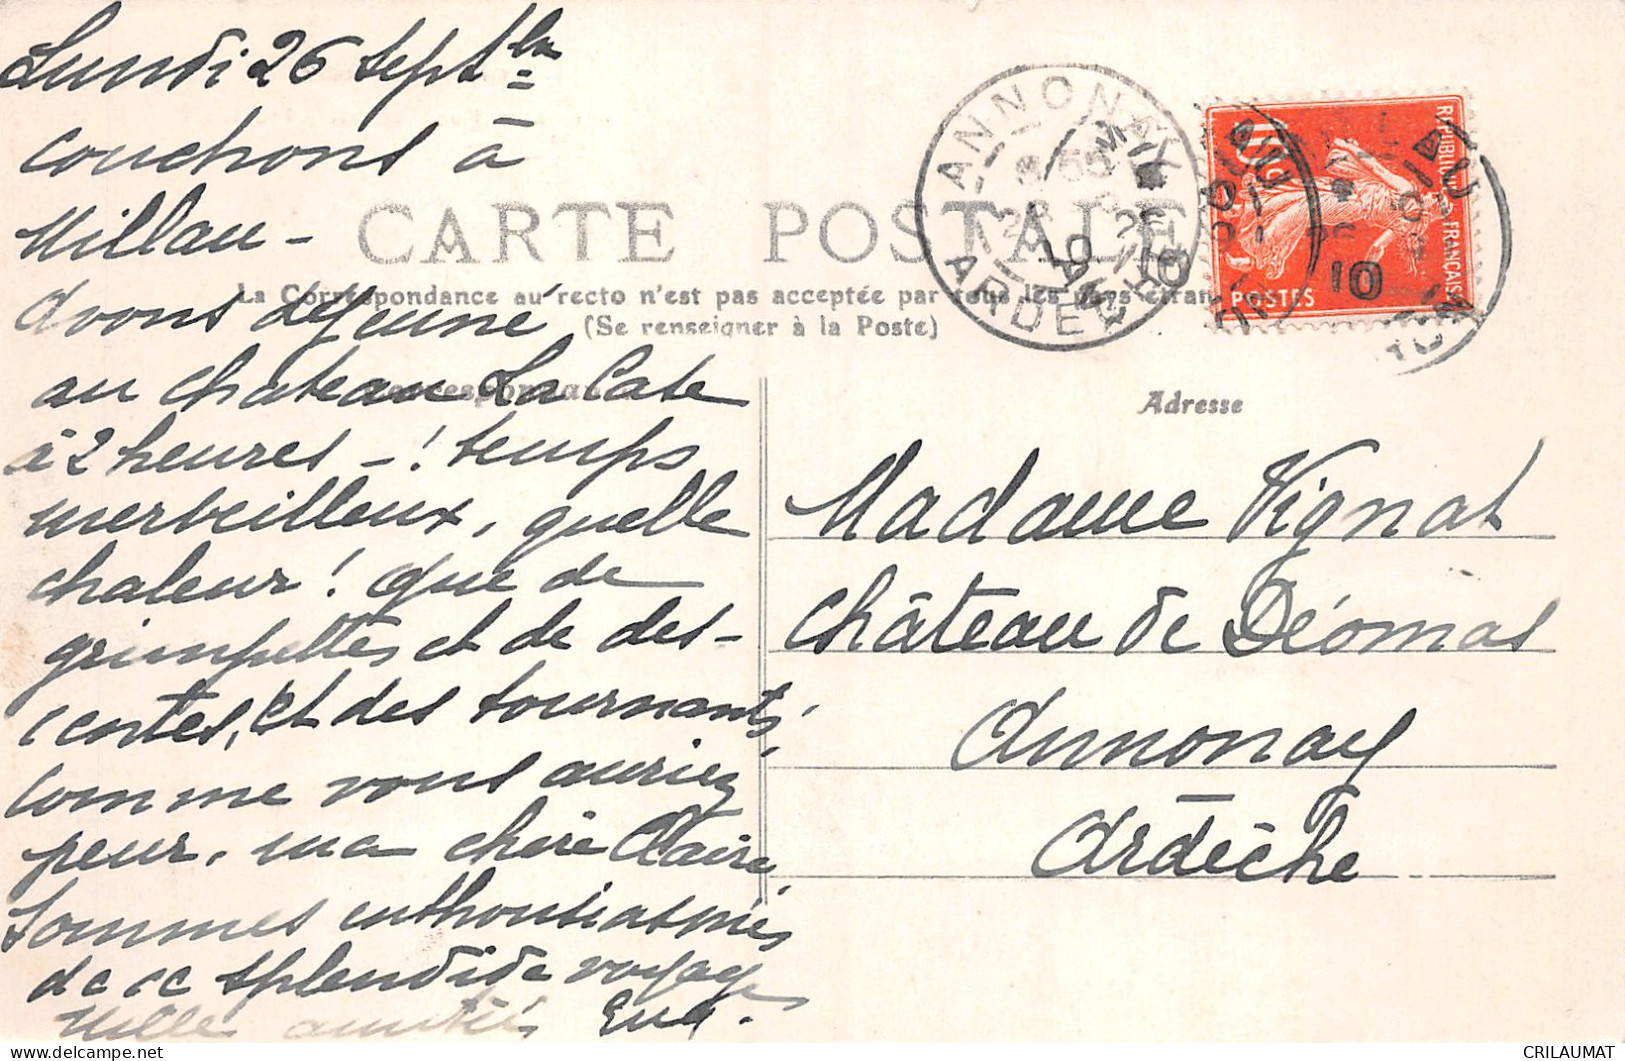 Lundi 26 Septbre
couchons à
Millau -
avons déjeuné
au chateau La Cate
à 2 heures - ! temps
merveilleux, quelle
chaleur ! que de
grimpettes et de des-
centes, et des tournants,
comme vous auriez
peur, ma chère Claire,
sommes enthousiasmés
de ce splendide voyage
Mille amitiés Eva.
CARTE POSTALE
La Correspondance au recto n'est pas acceptée par tous les pays étran
(Se renseigner à la Poste)
Correspondance
ANNONAY
ARDECHE
10
REPUBLIQUE FRANÇAISE
10c
POSTES
MILLAU
10
AVEYRON
Adresse
Madame Vignat
Château de Déomas
Annonay
Ardèche
CRILAUMAT